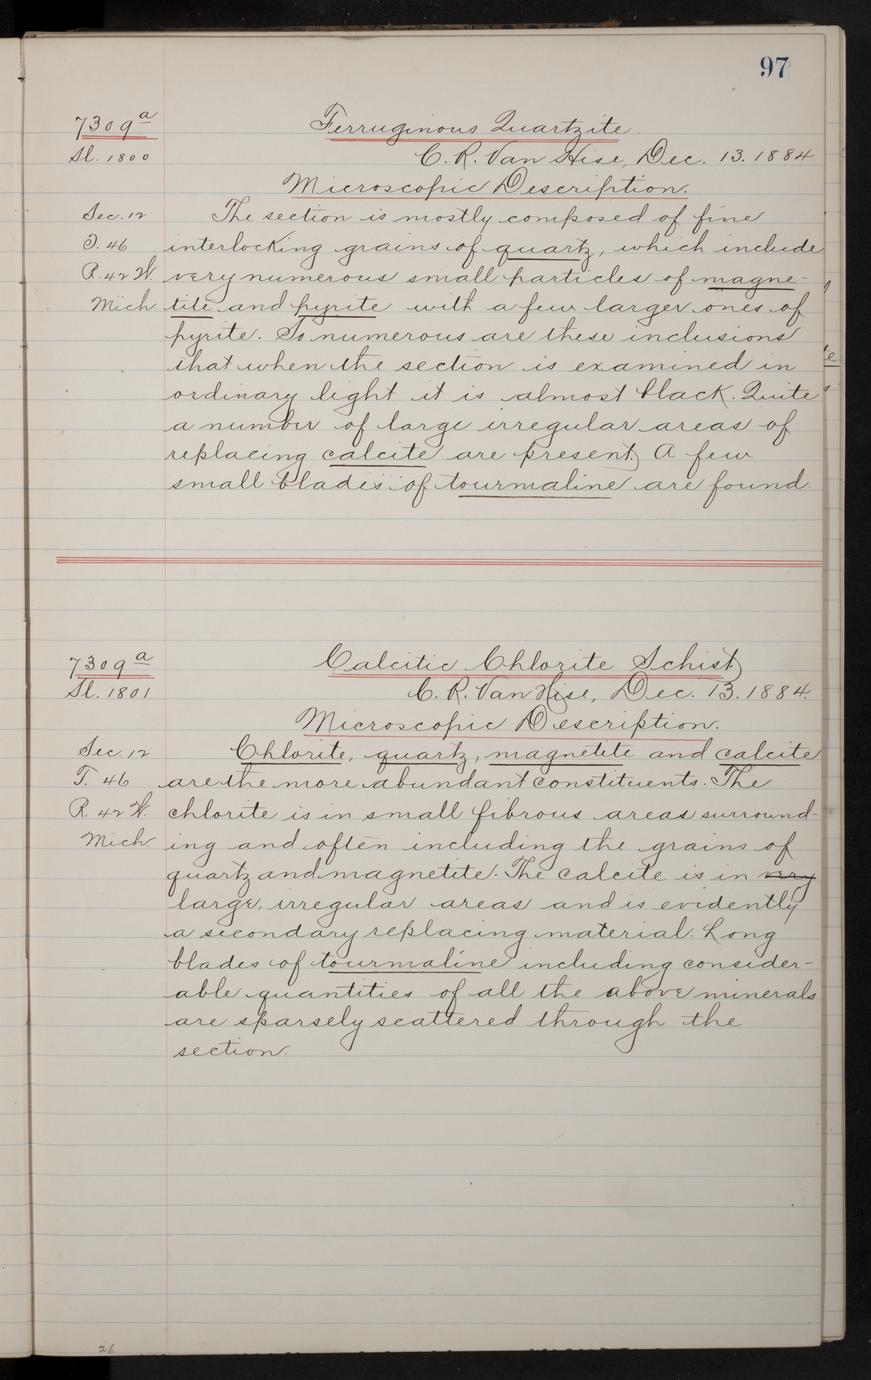 97
7309a Ferruginous Quartzite.
Sl. 1800 C. R. Van Hise, Dec. 13. 1884
Microscopic Description.
Sec. 12 The section is mostly composed of fine
T. 46 interlocking grains of quartz, which include
R. 42 W. very numerous small particles of magne-
Mich. tite and pyrite with a few larger ones of
pyrite. So numerous are these inclusions
that when the section is examined in
ordinary light it is almost black. Quite
a number of large irregular areas of
replacing calcite are present. A few
small blades of tourmaline are found.
7309a Calcitic Chlorite Schist
Sl. 1801 C. R. Van Hise, Dec. 13. 1884.
Microscopic Description.
Sec. 12 Chlorite, quartz, magnetite and calcite
T. 46 are the more abundant constituents. The
R. 42 W. chlorite is in small fibrous areas surround-
Mich. ing and often including the grains of
quartz and magnetite. The calcite is in very
large, irregular areas and is evidently
a secondary replacing material. Long
blades of tourmaline including consider-
able quantities of all the above minerals
are sparsely scattered through the
section.
26